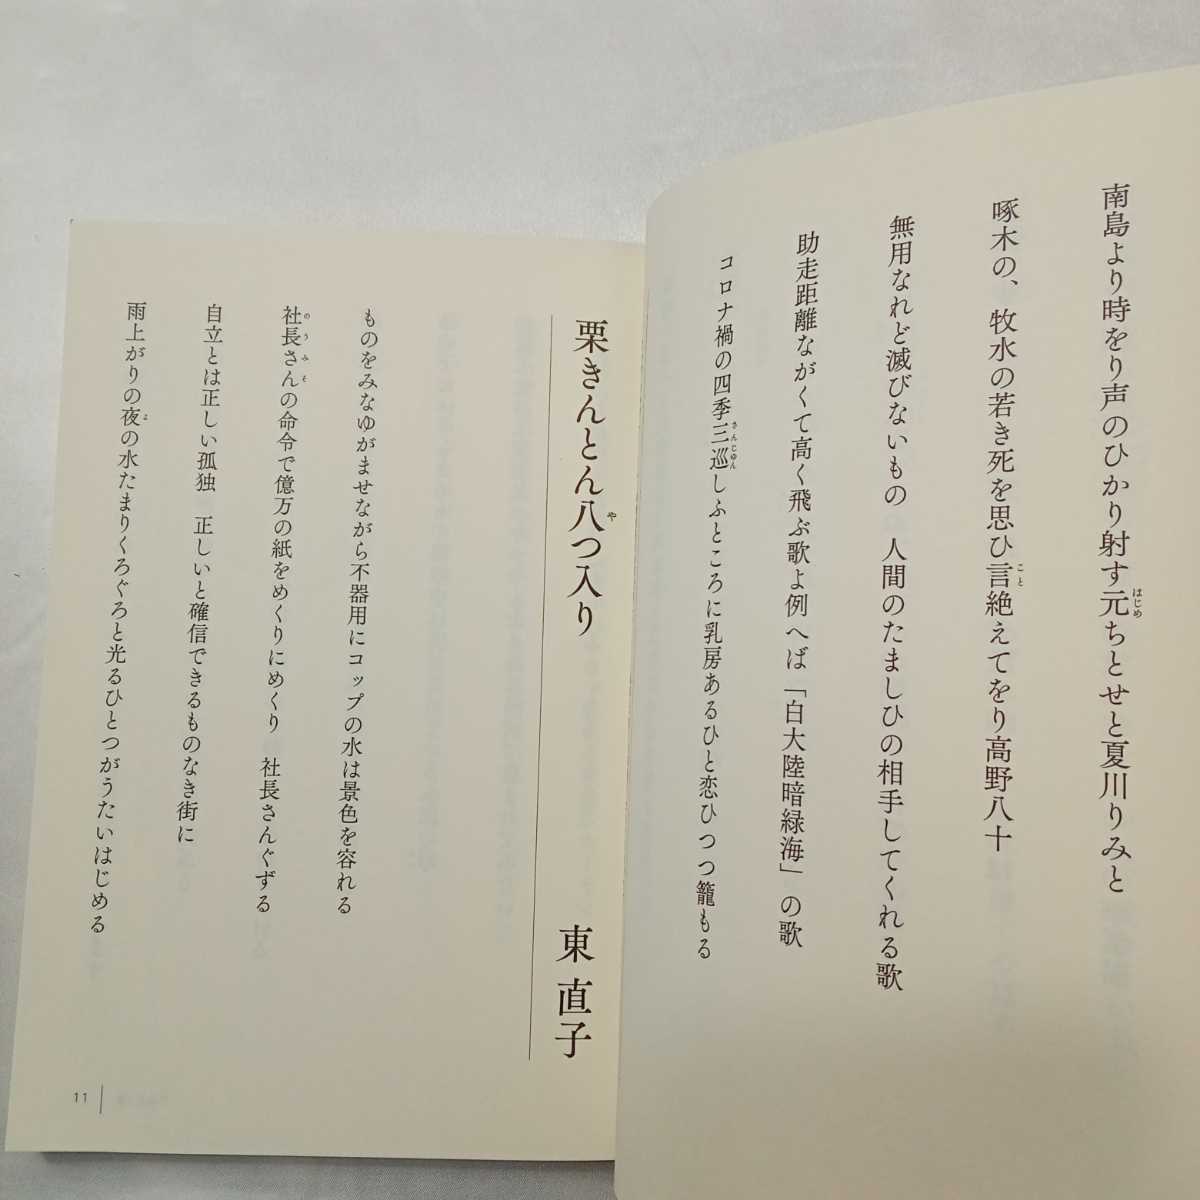 南島より時をり声のひかり射す元ちとせと夏川りみと
はじめ
啄木の、牧水の若き死を思ひ言絶えてをり高野八十
こと
無用なれど滅びないもの 人間のたましひの相手してくれる歌
助走距離ながくて高く飛ぶ歌よ例へば「白大陸暗緑海」の歌
コロナ禍の四季三巡しふところに乳房あるひと恋ひつつ籠もる
さんじゅん
栗きんとん八つ入り
や
東直子
ものをみなゆがませながら不器用にコップの水は景色を容れる
社長さんの命令で億万の紙をめくりにめくり 社長さんぐずる
のうみそ
自立とは正しい孤独 正しいと確信できるものなき街に
雨上がりの夜の水たまりくろぐろと光るひとつがうたいはじめる
よ
11